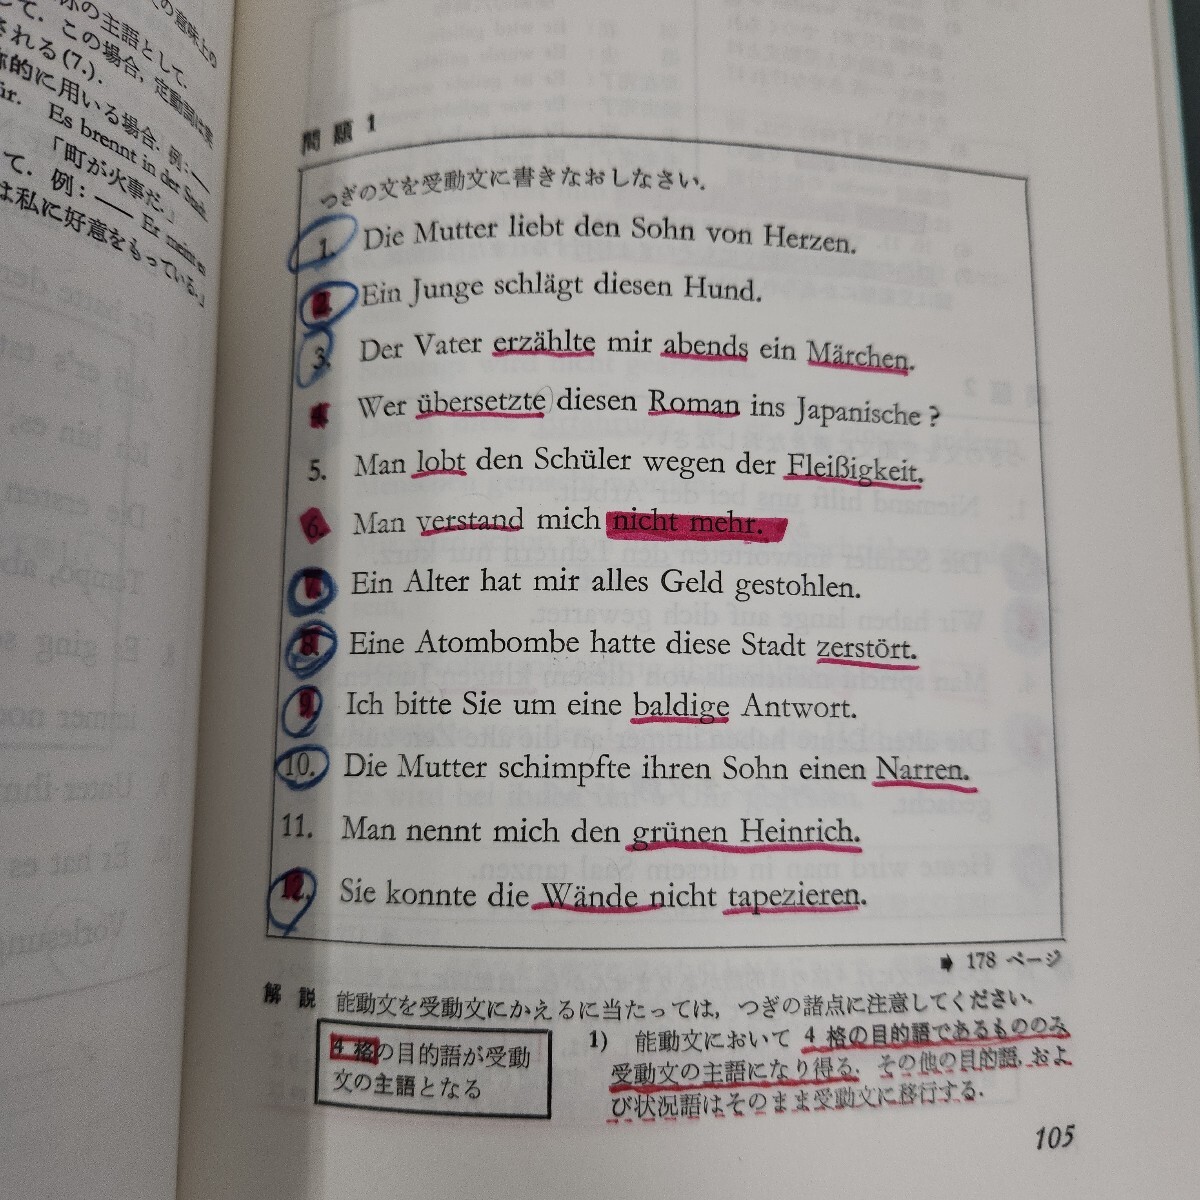 の意味上の
の主語として.
て. この場合, 定動詞は
される (7.).
的に用いる場合. 例: ——
ür. Es brennt in der Stadt.
「町が火事だ.」
て. 例: —— Er meint es
は私に好意をもっている.」
問題 1
つぎの文を受動文に書きなおしなさい.
1. Die Mutter liebt den Sohn von Herzen.
2. Ein Junge schlägt diesen Hund.
3. Der Vater erzählte mir abends ein Märchen.
4. Wer übersetzte diesen Roman ins Japanische?
5. Man lobt den Schüler wegen der Fleißigkeit.
6. Man verstand mich nicht mehr.
7. Ein Alter hat mir alles Geld gestohlen.
8. Eine Atombombe hatte diese Stadt zerstört.
9. Ich bitte Sie um eine baldige Antwort.
10. Die Mutter schimpfte ihren Sohn einen Narren.
11. Man nennt mich den grünen Heinrich.
12. Sie konnte die Wände nicht tapezieren.
➡ 178 ページ
解説 能動文を受動文にかえるに当たっては, つぎの諸点に注意してください.
4 格の目的語が受動
文の主語となる
1) 能動文において 4 格の目的語であるもののみ
受動文の主語になり得る. その他の目的語, およ
び状況語はそのまま受動文に移行する.
105